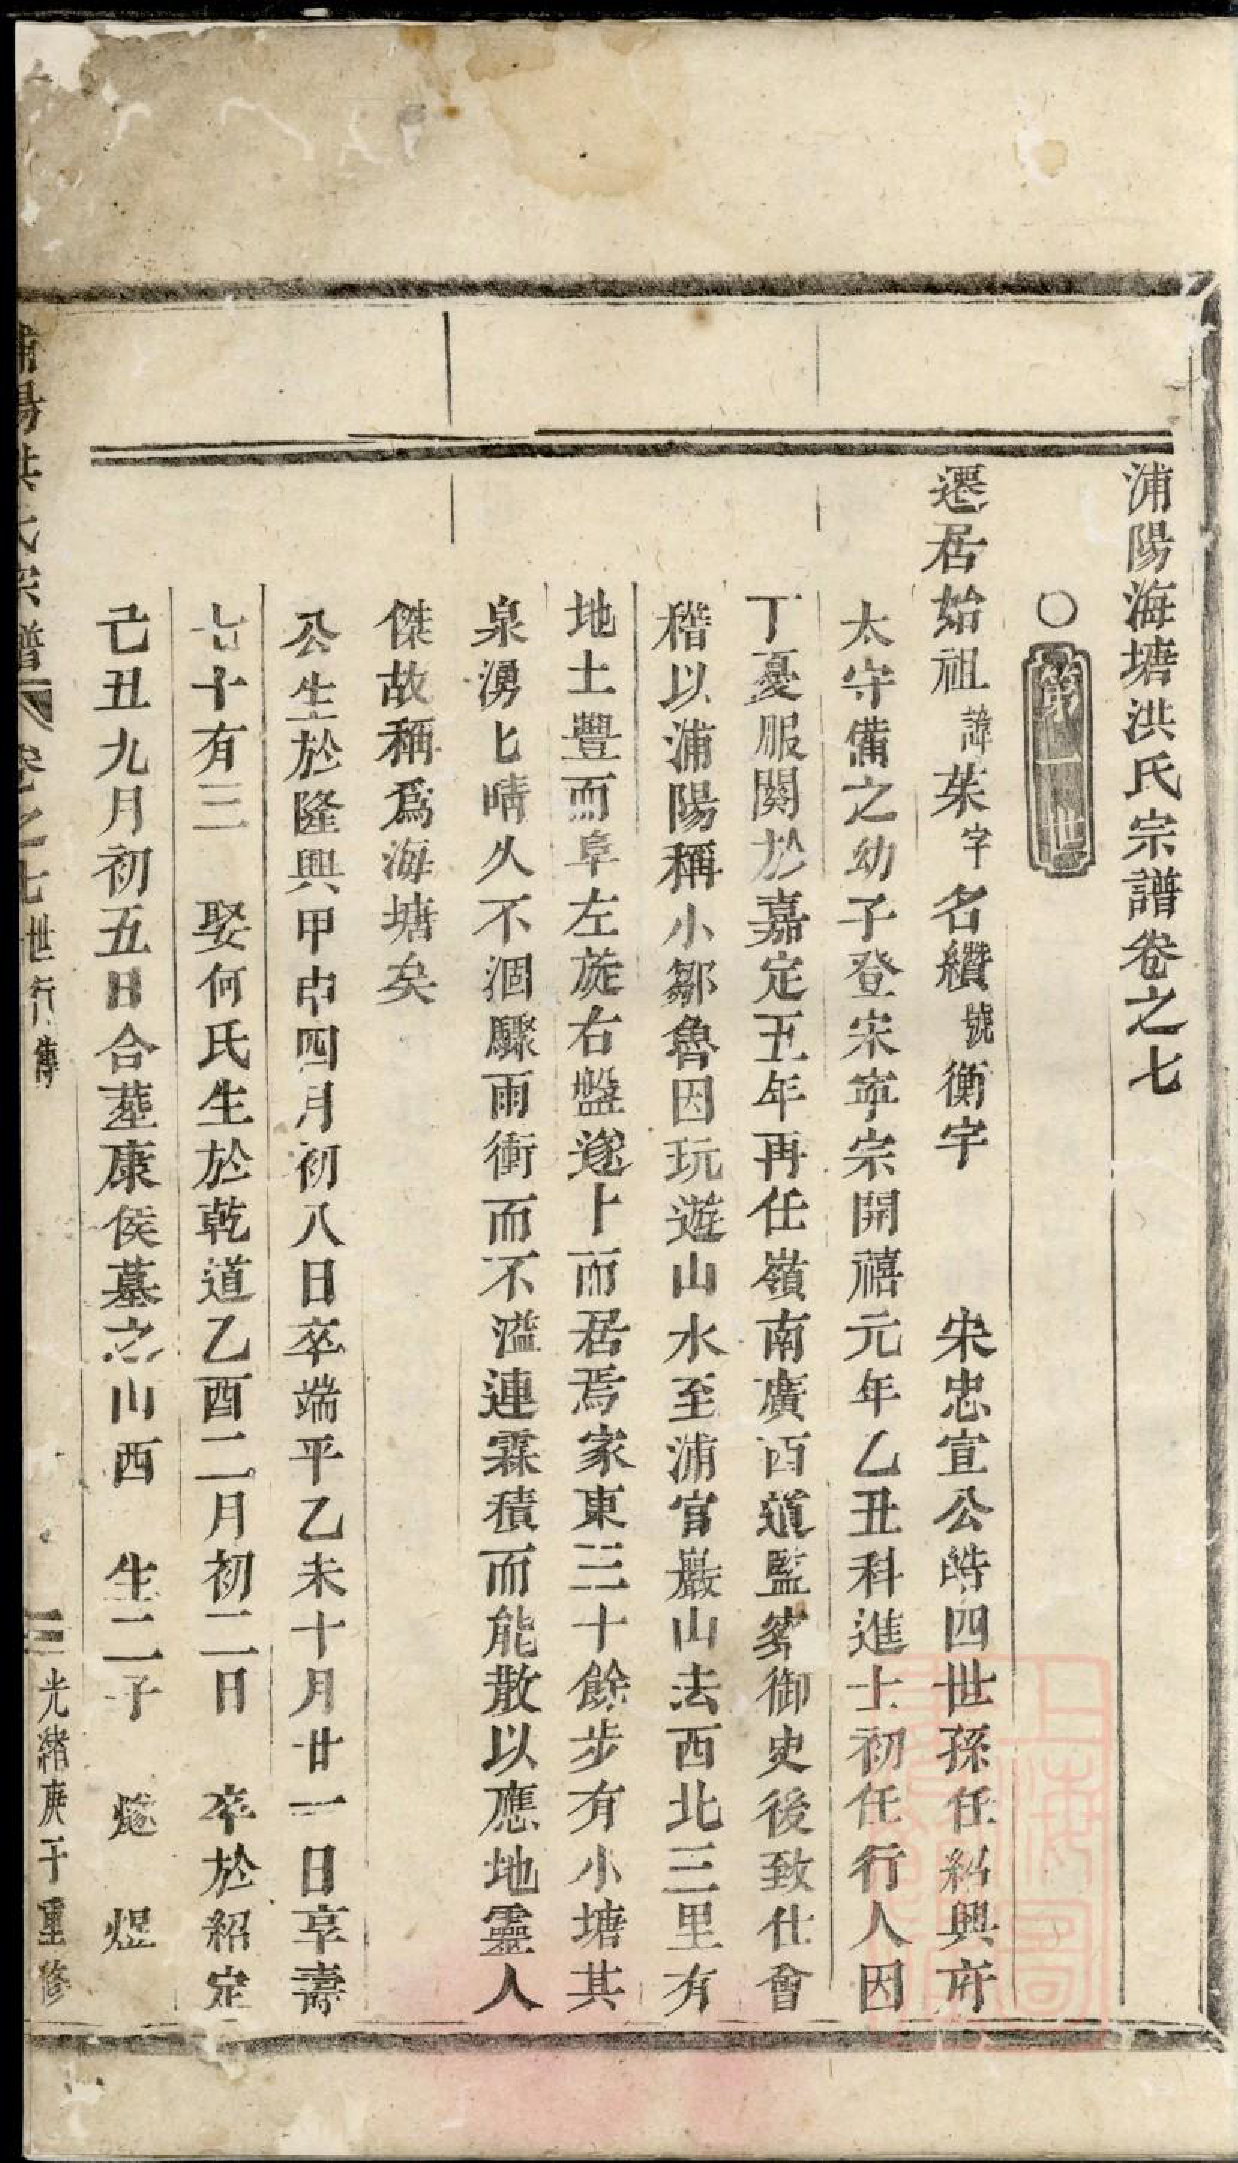 浦陽海塘洪氏宗譜卷之七
○第一世
遷居始祖諱茱字名纘號衡宇　宋忠宣公皓四世孫任紹興府
太守備之幼子登宋寧宗開禧元年乙丑科進士初任行人因
丁憂服闋於嘉定五年再任嶺南廣西道監察御史後致仕會
稽以浦陽稱小鄒魯因玩遊山水至浦官巖山法西北三里有
地土豐而阜左旋右盤遂卜而居焉家東三十餘步有小塘其
泉湧匕晴久不涸驟雨衝而不溢連霖積而能散以應地靈人
傑故稱爲海塘矣
公生於隆興甲申四月初八日卒端平乙未十月廿一日享壽
七十有三　娶何氏生於乾道乙酉二月初二日　卒於紹定
己丑九月初五日合塟康侯墓之山西　生二子　燧　煜
浦陽洪氏宗譜　卷之七　世行傳　三　光緒庚子重修